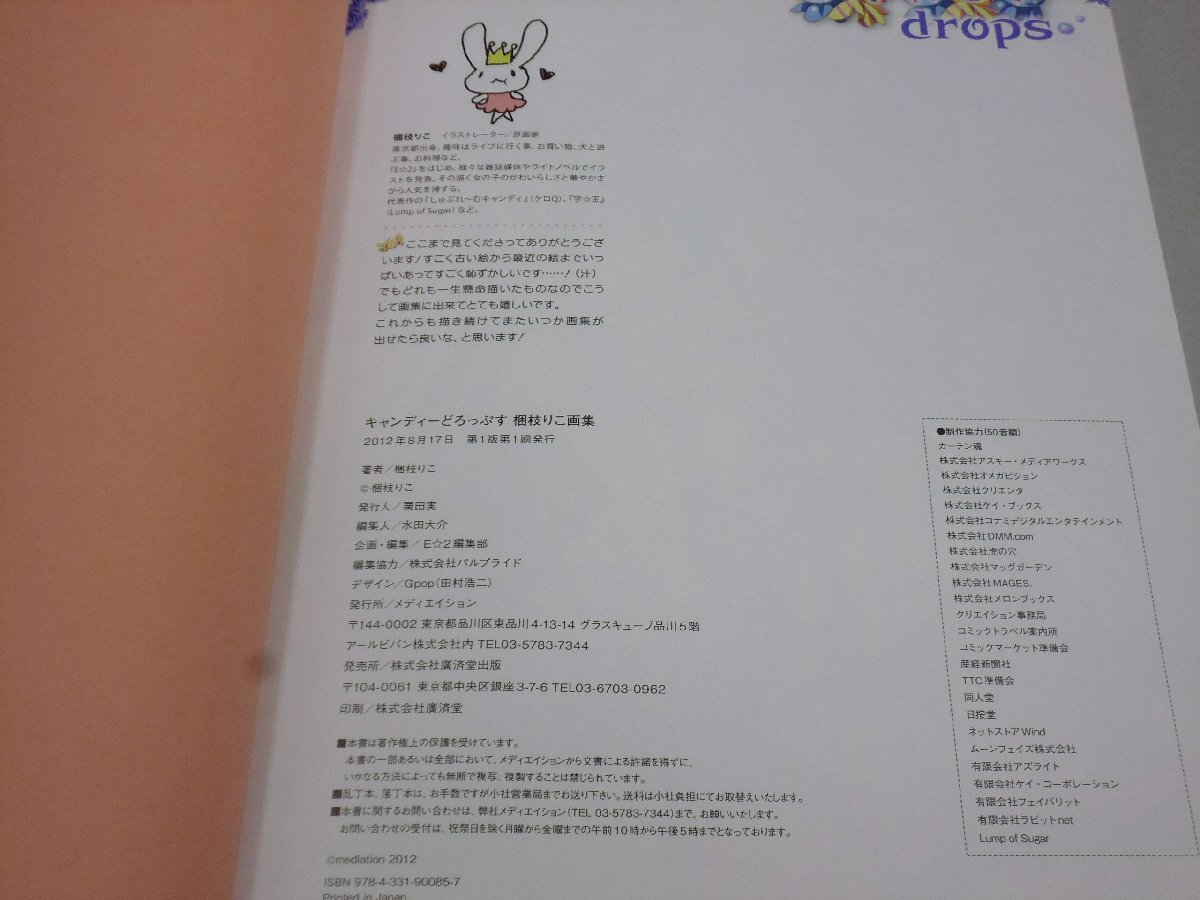 drops
梱枝りこ イラストレーター／原画家
東京都出身。趣味はライブに行く事、お買い物、犬と遊
ぶ事、お料理など。
『E☆2』をはじめ、様々な雑誌媒体やライトノベルでイラ
ストを発表。その描く女の子のかわいらしさと華やかさ
から人気を博する。
代表作の『しゅぷれ～むキャンディ』(ケロQ)、『学☆王』
(Lump of Sugar)など。
ここまで見てくださってありがとうござ
います!すごく古い絵から最近の絵までいっ
ぱいあってすごく恥ずかしいです……!(汗)
でもどれも一生懸命描いたものなのでこう
して画集に出来てとても嬉しいです。
これからも描き続けてまたいつか画集が
出せたら良いな、と思います!
キャンディーどろっぷす 梱枝りこ画集
2012年8月17日 第1版第1刷発行
著者／梱枝りこ
©梱枝りこ
発行人／栗田実
編集人／水田大介
企画・編集／E☆2編集部
編集協力／株式会社パルプライド
デザイン／Gpop(田村浩二)
発行所／メディエイション
〒144-0002 東京都品川区東品川4-13-14 グラスキューブ品川5階
アールビバン株式会社内 TEL03-5783-7344
発売所／株式会社廣済堂出版
〒104-0061 東京都中央区銀座3-7-6 TEL03-6703-0962
印刷／株式会社廣済堂
■本書は著作権上の保護を受けています。
本書の一部あるいは全部において、メディエイションから文書による許諾を得ずに、
いかなる方法によっても無断で複写、複製することは禁じられています。
■乱丁本、落丁本は、お手数ですが小社営業局までお送り下さい。送料は小社負担にてお取替えいたします。
■本書に関するお問い合わせは、弊社メディエイション(TEL 03-5783-7344)まで、お願いいたします。
お問い合わせの受付は、祝祭日を除く月曜から金曜までの午前10時から午後5時までとなっております。
©mediation 2012
ISBN 978-4-331-90085-7
Printed in Japan
●制作協力(50音順)
カーテン魂
株式会社アスキー・メディアワークス
株式会社オメガビジョン
株式会社クリエンタ
株式会社ケイ・ブックス
株式会社コナミデジタルエンタテインメント
株式会社DMM.com
株式会社虎の穴
株式会社マッグガーデン
株式会社MAGES.
株式会社メロンブックス
クリエイション事務局
コミックトラベル案内所
コミックマーケット準備会
産経新聞社
TTC準備会
同人堂
日按堂
ネットストアWind
ムーンフェイズ株式会社
有限会社アズライト
有限会社ケイ・コーポレーション
有限会社フェイバリット
有限会社ラビットnet
Lump of Sugar